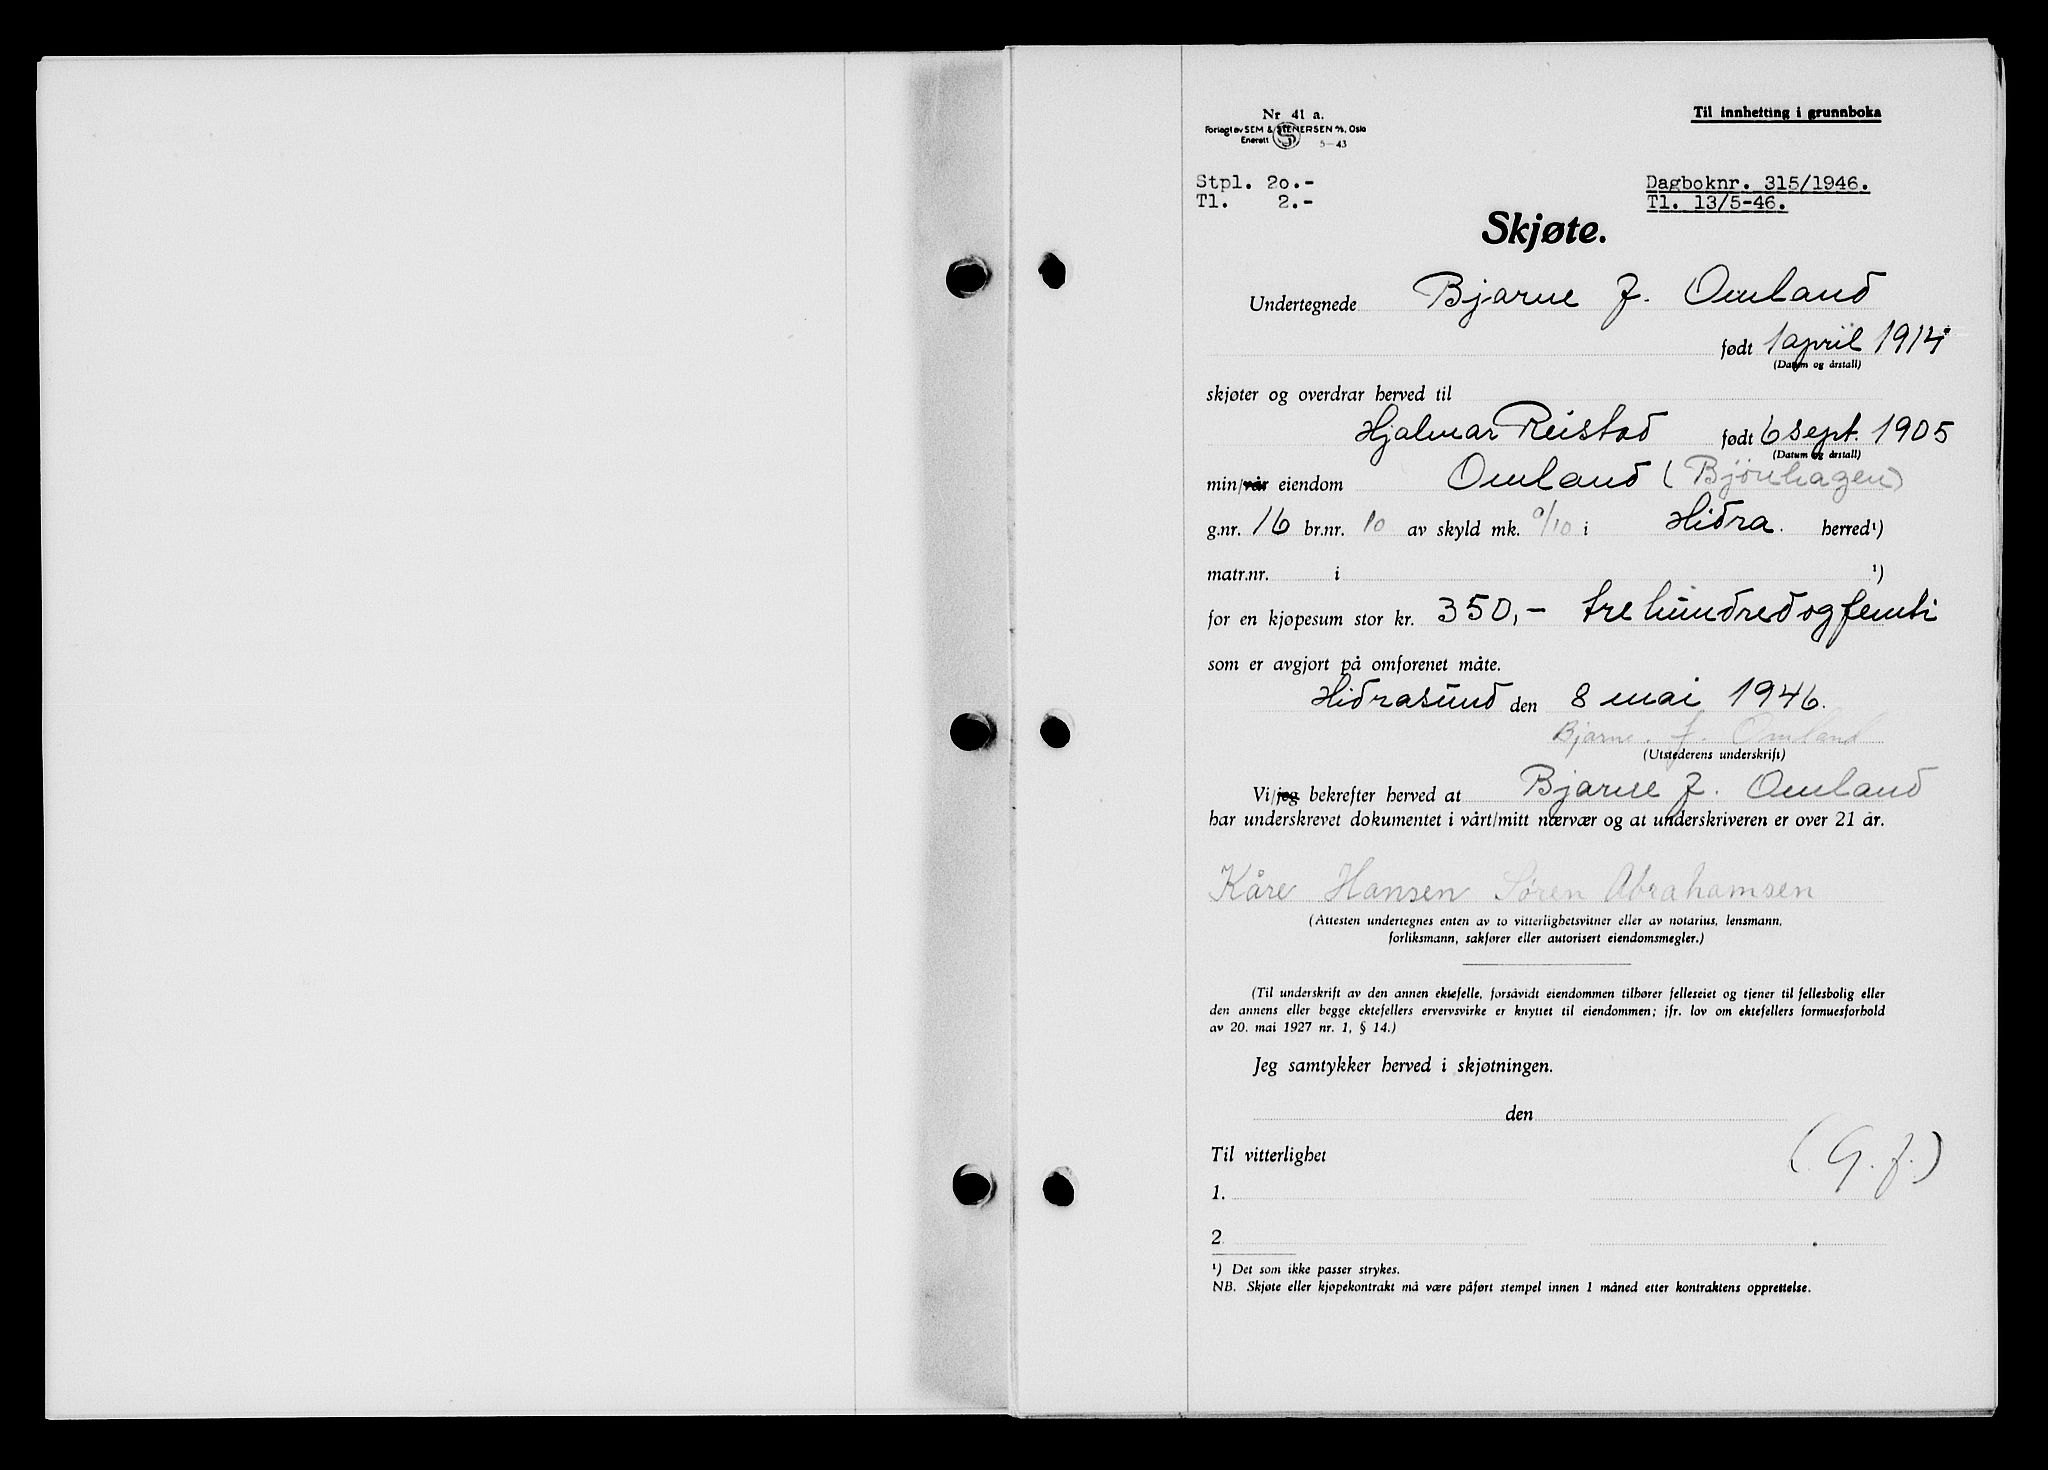 Nr 41 a.
Til innhefting i grunnboka
Forlagt av SEM & STENERSEN A/S, Oslo
Enerett S 5-43
Stpl. 20.-
Dagboknr. 315/1946.
Tl. 2.-
Tl. 13/5-46.
Skjøte.
Undertegnede Bjarne J. Omland
født 1 april 1914
(Datum og årstall)
skjøter og overdrar herved til
Hjalmar Reistad født 6 sept. 1905
(Datum og årstall)
min/vår eiendom Omland (Bjönhagen)
g.nr. 16 br.nr. 10 av skyld mk. 0/10 i Hidra. herred¹)
matr.nr. i ¹)
for en kjøpesum stor kr. 350,- tre hundred og femti
som er avgjort på omforenet måte.
Hidrasund den 8 mai 1946.
Bjarne. J. Omland
(Utstederens underskrift)
Vi/jeg bekrefter herved at Bjarne J. Omland
har underskrevet dokumentet i vårt/mitt nærvær og at underskriveren er over 21 år.
Kåre Hansen Søren Abrahamsen
(Attesten undertegnes enten av to vitterlighetsvitner eller av notarius, lensmann,
forliksmann, sakfører eller autorisert eiendomsmegler.)
(Til underskrift av den annen ektefelle, forsåvidt eiendommen tilhører felleseiet og tjener til fellesbolig eller
den annens eller begge ektefellers ervervsvirke er knyttet til eiendommen; jfr. lov om ektefellers formuesforhold
av 20. mai 1927 nr. 1, § 14.)
Jeg samtykker herved i skjøtningen.
den
Til vitterlighet
(G. J.)
1.
2
¹) Det som ikke passer strykes.
NB. Skjøte eller kjøpekontrakt må være påført stempel innen 1 måned etter kontraktens opprettelse.